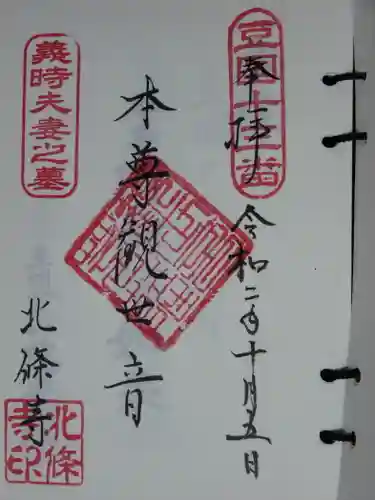 奉拝
令和二年十月五日
本尊觀世音
義時夫妻之墓
北條寺
北條寺印